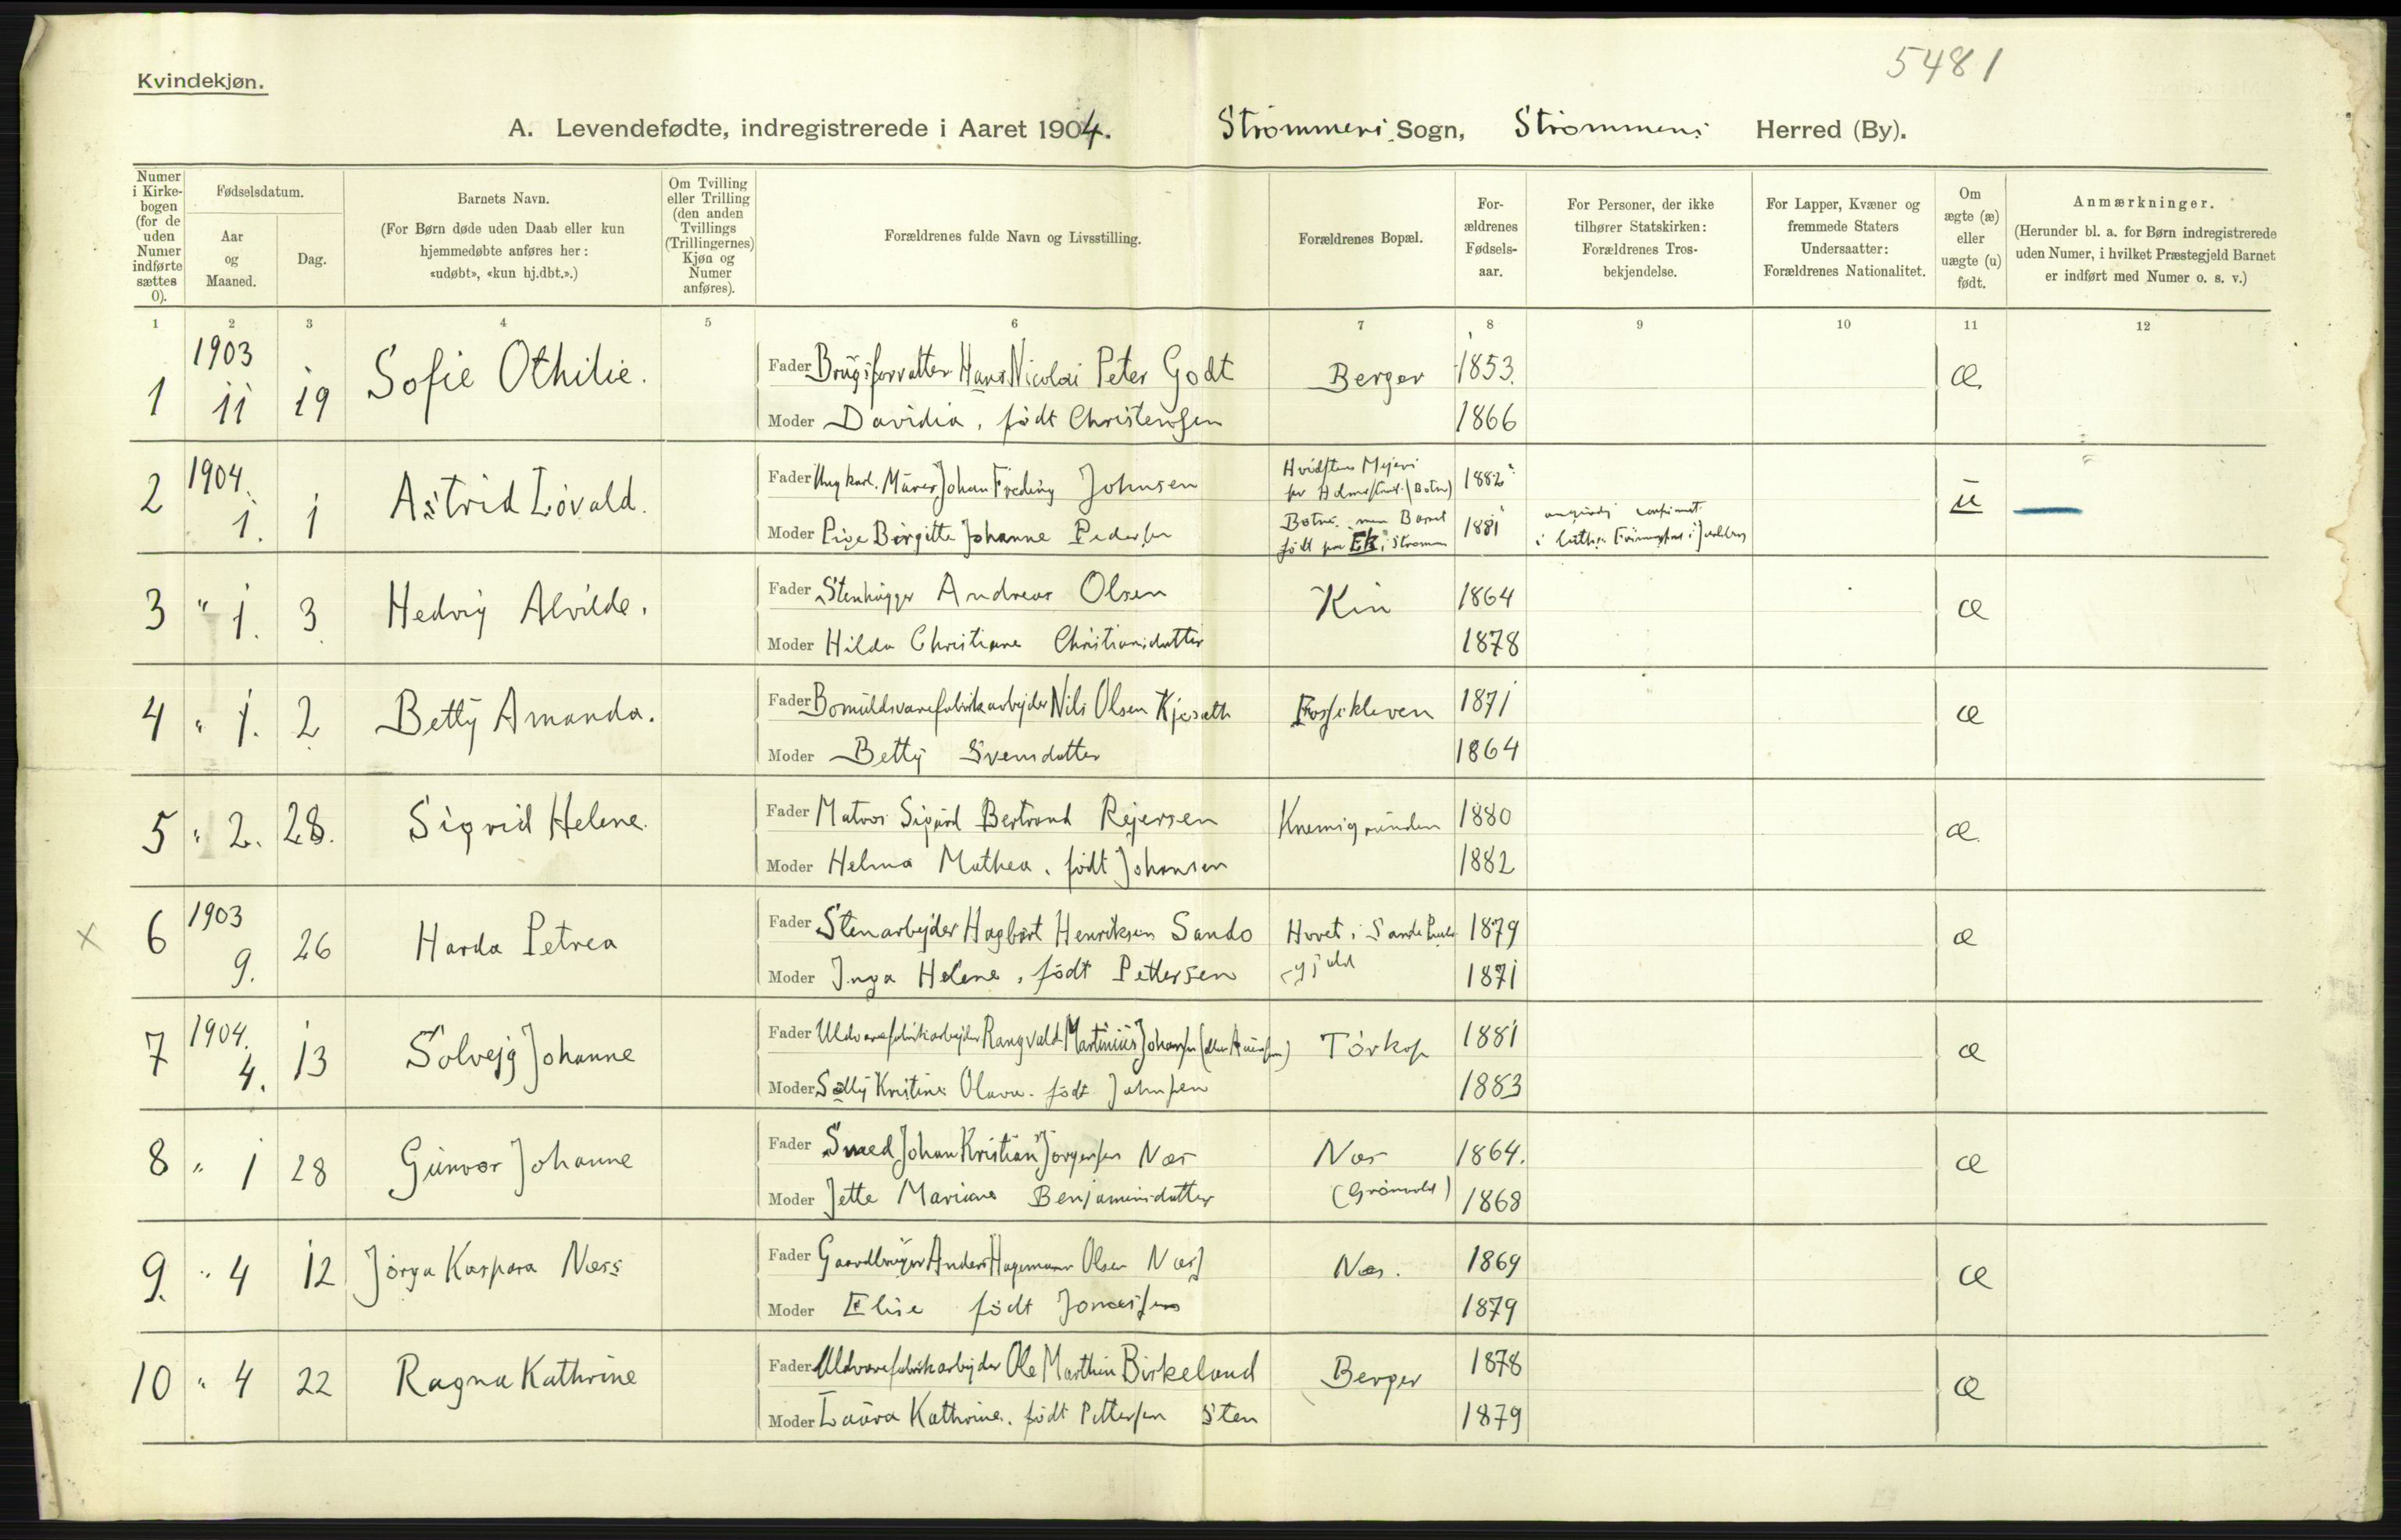 5481
Kvindekjøn.
A. Levendefødte, indregistrerede i Aaret 1904. Strømmens Sogn, Strømmens Herred (By).
Numer i Kirkebogen (for de uden Numer indførte sættes 0).
Fødselsdatum.
Aar og Maaned.
Dag.
Barnets Navn.
(For Børn døde uden Daab eller kun hjemmedøbte anføres her: «udøbt», «kun hj.dbt.».)
Om Tvilling eller Trilling (den anden Tvillings (Trillingernes) Kjøn og Numer anføres).
Forældrenes fulde Navn og Livsstilling.
Forældrenes Bopæl.
Forældrenes Fødselsaar.
For Personer, der ikke tilhører Statskirken: Forældrenes Trosbekjendelse.
For Lapper, Kvæner og fremmede Staters Undersaatter: Forældrenes Nationalitet.
Om ægte (æ) eller uægte (u) født.
Anmærkninger.
(Herunder bl. a. for Børn indregistrerede uden Numer, i hvilket Præstegjeld Barnet er indført med Numer o. s. v.)
1 2 3 4 5 6 7 8 9 10 11 12
1 1903 11 19 Sofie Othilie. Fader Brugsforvalter Hans Nicolai Peter Godt Berger 1853. æ.
Moder Davidia, født Christensen 1866
2 1904. 1. 1 Astrid Lovald. Fader Ungkarl. Murer Johan Fredrig Johnsen Hvidstens Mejeri 1882? u
Moder Pige Birgitte Johanne Pedersen Botne. men Barnet født paa Ek i Strømm 1881
3 " 1. 3 Hedvig Alvilde. Fader Stenhugger Andreas Olsen Kin 1864 æ
Moder Hilda Christiane Christiansdatter 1878
4 " 1. 2 Betty Amanda. Fader Bomuldsvarefabrikarbejder Nils Olsen Kjeræth Fossekleven 1871 æ
Moder Betty Svensdatter 1864
5 " 2. 28. Sigrid Helene. Fader Matros Sigurd Bertrand Rejersen Knemsgrunden 1880 æ.
Moder Helma Mathea. født Johansen 1882
x 6 1903 9. 26 Harda Petrea Fader Stenarbejder Hagbart Henriksen Sando Hovet i Sande 1879 æ
Moder Inga Helene, født Pettersen 1871
7 1904. 4. 13 Solvejg Johanne Fader Uldvarefabrikarbejder Rangvald Martinius Johansen Tørkop 1881 æ
Moder Sally Kristine Olava. født Johnsen 1883
8 " 1 28 Gunvor Johanne Fader Smed Johan Kristian Jørgensen Næs Næs 1864. æ
Moder Jette Mariane Benjaminsdatter (Grønvold) 1868
9. " 4 12 Jørga Kaspara Næss Fader Gaardbruger Anders Hagemann Olsen Næss Næs. 1869 æ
Moder Elise født Jonassen 1879
10 " 4 22 Ragna Kathrine Fader Uldvarefabrikarbejder Ole Marthin Birkeland Berger 1878 æ
Moder Laura Kathrine. født Pettersen Sten 1879